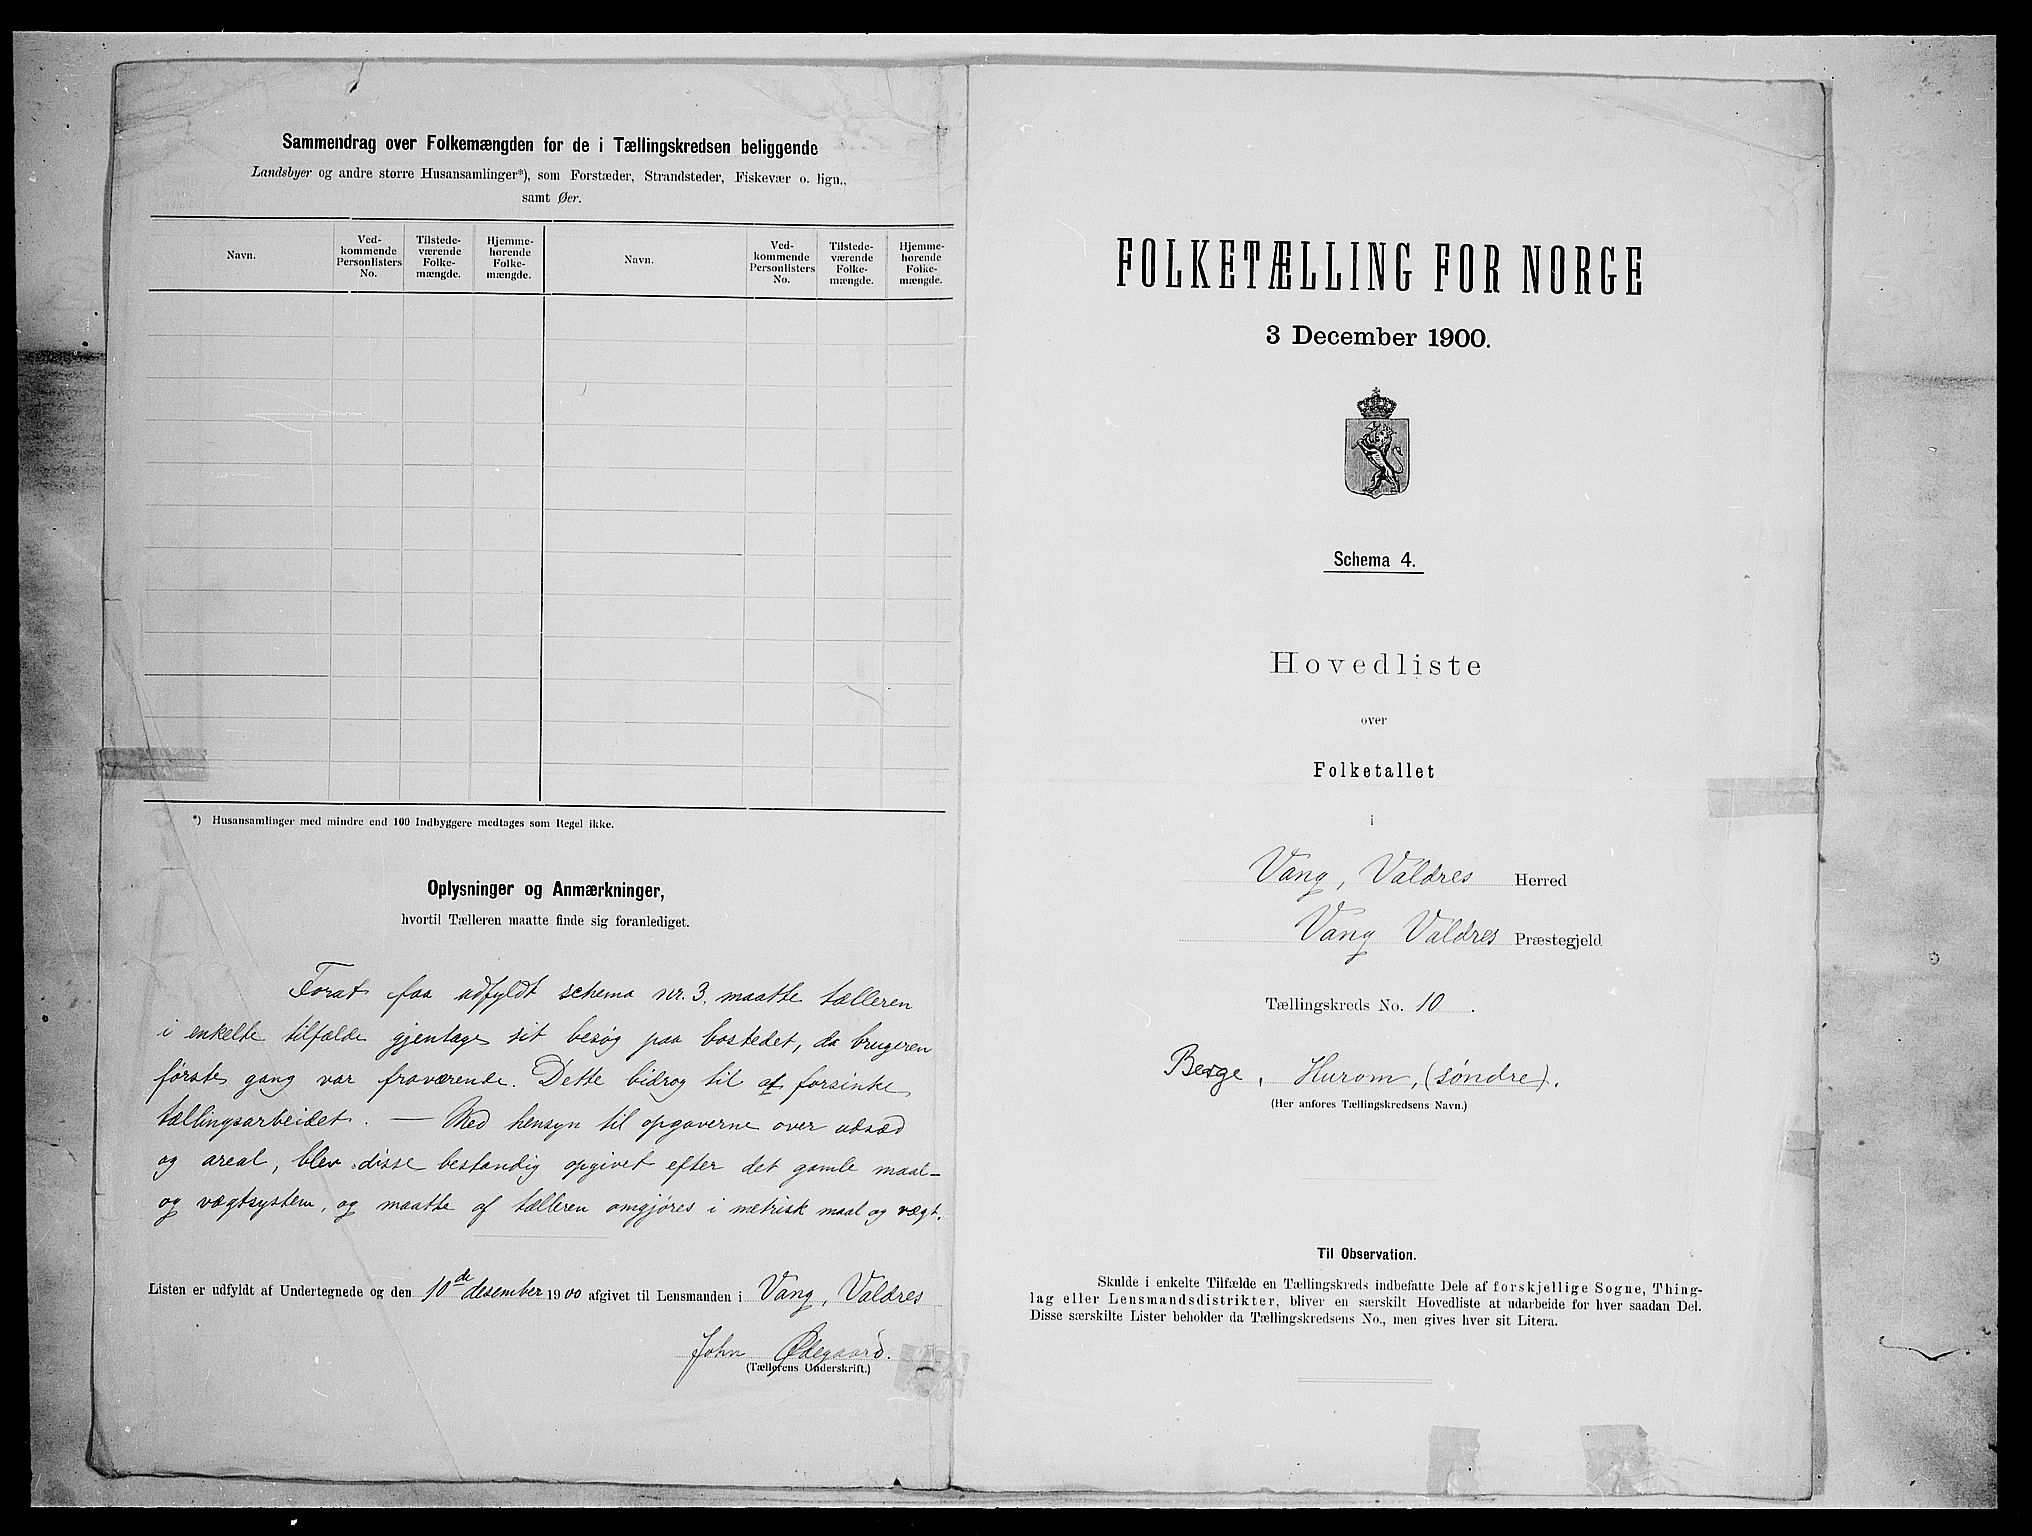 Sammendrag over Folkemængden for de i Tællingskredsen beliggende
Landsbyer og andre større Husansamlinger*), som Forstæder, Strandsteder, Fiskevær o. lign.,
samt Øer.
Navn.
Ved-
kommende
Personlisters
No.
Tilstede-
værende
Folke-
mængde.
Hjemme-
hørende
Folke-
mængde.
Navn.
Ved-
kommende
Personlisters
No.
Tilstede-
værende
Folke-
mængde.
Hjemme-
hørende
Folke-
mængde.
*) Husansamlinger med mindre end 100 Indbyggere medtages som Regel ikke.
Oplysninger og Anmærkninger,
hvortil Tælleren maatte finde sig foranlediget.
Forat faa udfyldt schema nr. 3. maatte tælleren
i enkelte tilfælde gjentage sit besøg paa bostedet, da brugeren
første gang var fraværende. Dette bidrog til at forsinke
tællingsarbeidet. — Med hensyn til opgaverne over udsæd
og areal, blev disse bestandig opgivet efter det gamle maal-
og vægtsystem, og maatte af tælleren omgjøres i metrisk maal og vægt.
Listen er udfyldt af Undertegnede og den 10de desember 1900 afgivet til Lensmanden i Vang, Valdres
John Ødegaard.
(Tællerens Underskrift.)
FOLKETÆLLING FOR NORGE
3 December 1900.
Schema 4.
Hovedliste
over
Folketallet
i
Vang, Valdres Herred
Vang Valdres Præstegjeld
Tællingskreds No. 10.
Berge, Hurom, (søndre).
(Her anføres Tællingskredsens Navn.)
Til Observation.
Skulde i enkelte Tilfælde en Tællingskreds indbefatte Dele af forskjellige Sogne, Thing-
lag eller Lensmandsdistrikter, bliver en særskilt Hovedliste at udarbeide for hver saadan Del.
Disse særskilte Lister beholder da Tællingskredsens No., men gives hver sit Litera.